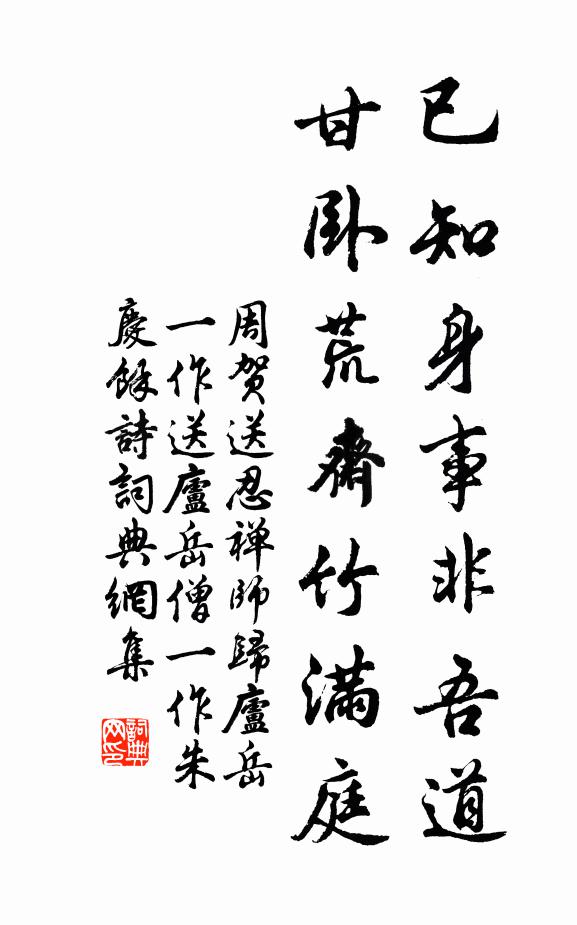 已知身事非吾道
甘卧荒齋竹滿庭
周贺送忍禅师歸廬岳
一作送廬岳僧一作朱
慶餘詩詞典網集
詞典网印